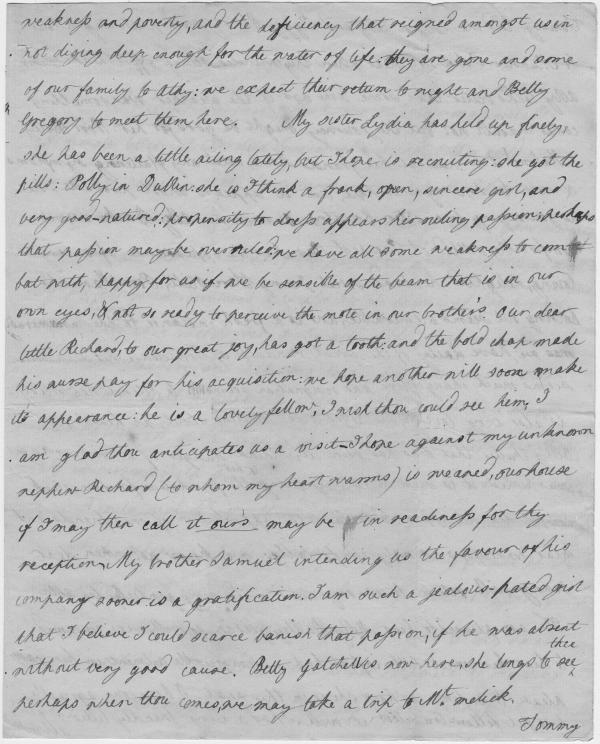 weakness and poverty, and the deficiency that reigned amongst us in
not diging deep enough for the water of life: they are gone and some
of our family to Athy: we expect their return to night and Betty
Gregory to meet them here. My sister Lydia has held up finely,
she has been a little ailing lately, but I hope is recruiting: she got the
pills: Polly in Dublin: she is I think a frank, open, sincere girl, and
very good-natured: propensity to dress appears her ruling passion; perhaps
that passion may be overruled: we have all some weakness to com=
bat with, happy for us if we be sensible of the beam that is in our
own eyes, & not so ready to perceive the mote in our brother's. Our dear
little Richard, to our great joy, has got a tooth: and the bold chap made
his nurse pay for his acquisition: we hope another will soon make
its appearance: he is a lovely fellow, I wish thou could see him, I
am glad thou anticipates us a visit—I hope against my unknown
nephew Richard (to whom my heart warms) is weaned, our house
if I may then call it our's may be in readiness for thy
reception. My brother Samuel intending us the favour of his
company sooner is a gratification. I am such a jealous-pated girl
that I believe I could scarce banish that passion, if he was absent
without very good cause. Betty Gatchell is now here, she longs to see thee
perhaps when thou comes, we may take a trip to Mt. melick.
Tommy